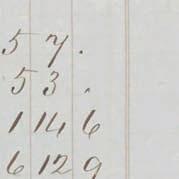 5 7 .
5 3 .
1 14 6
6 12 9